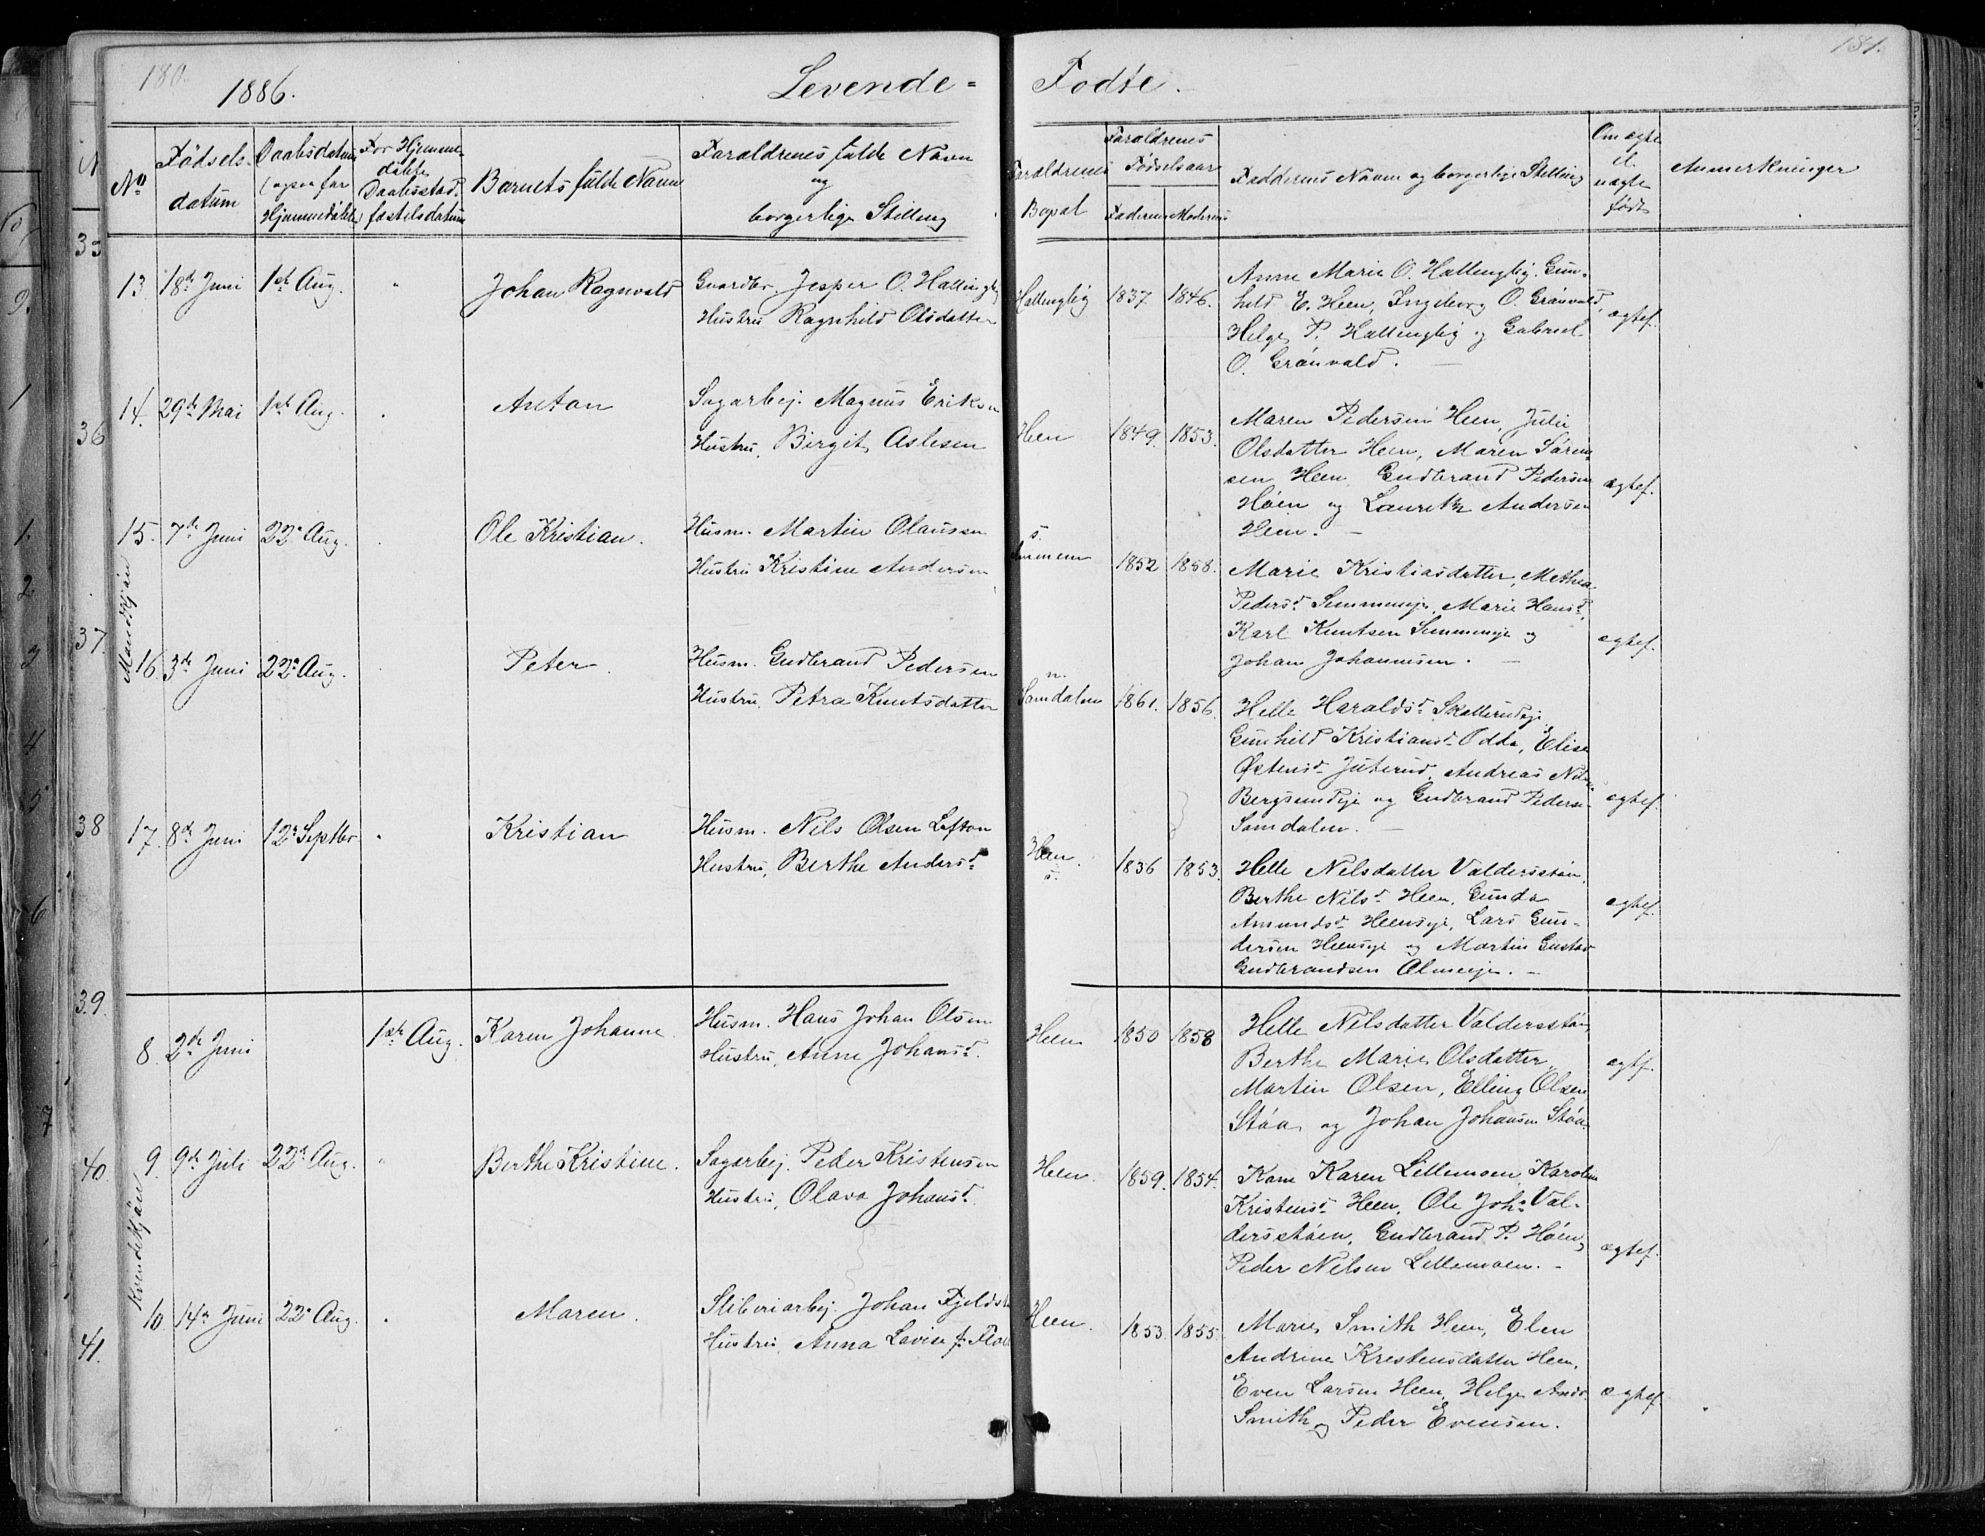 180.
1886.
Levende-
Fødte.
181.
No
Fødsels-
datum
Daabsdatum
(ogsaa for
Hjemmedøbte)
For Hjemme-
døbte
Daabsstad-
fæstelsdatum
Barnets fulde Navn
Foræeldrenes fulde Navn
og
borgerlige Stilling
Forældrenes
Bopæl
Forældrenes
Fødselsaar
Faderens
Moderens
Faddernes Navn og borgerlige Stilling
Om ægte
el.
uægte
født
Anmerkninger
Mandkjøn
13. 18de Juni 1ste Aug. " Johan Ragnvald
Gaardbr. Jesper O. Hallingby
Hustru Ragnhild Olsdatter
Hallingby 1837. 1846.
Anne Marie O. Hallingby, Gun-
hild E. Heen, Ingeborg O. Grönvold,
Helge P. Hallingby og Gabriel
O. Grönvald.
ægtef.
14. 29de Mai 1ste Aug. Anton
Sagarbej. Magnus Eriksen
Hustru, Birgit Aslesen
Heen 1849. 1853.
Maren Pedersen Heen, Julie
Olsdatter Heen, Maren Sören-
sen Heen, Gudbrand Pedersen
Höen og Lauritz Andersen
Heen.
ægtef.
15. 7de Juni 22de Aug. Ole Kristian.
Husm. Martin Olausen
Hustru Kristine Andersen
s.
1852 1858.
Marie Kristiasdatter, Mathea
Pedersd. Semmeneje, Marie Hansd.,
Karl Knutsen Semmeneje og
Johan Johannesen.
ægtef.
16. 3de Juni 22de Aug. Peter.
Husm. Gudbrand Pedersen
Hustru, Petra Knutsdatter
n.
Samdalen 1861. 1856.
Helle Haraldsd. Skollerudeje,
Gunhild Kristiansd. Odde, Elise
Østensd. Juterud, Andreas Nilsen
Bergsundeje og Gudbrand Peders.
Samdalen.
ægtef.
17. 8de Juni 12te Septbr " Kristian
Husm. Nils Olsen Lofton
Hustru, Berthe Andersd.
Heen.
s.
1836 1853.
Helle Nilsdatter Valdersstøen,
Berthe Nilsd. Heen, Gunda
Amundsd. Heenseje, Lars Gun-
dersen Heenseje og Martin Gustav
Gudbrandsen Almeeje.
ægtef.
Kvindekjön
8. 2de Juni 1ste Aug. Karen Johanne.
Husm. Hans Johan Olsen
Hustru, Anne Johansd.
Heen 1850 1858
Helle Nilsdatter Valdersstøen,
Berthe Marie Olsdatter,
Martin Olsen, Elling Olsen
Støa og Johan Johansen Støa.
ægtf.
9. 9de Juli 22de Aug. " Berthe Kristine.
Sagarbej. Peder Kristensen
Hustru, Olava Johansd.
Heen. 1859. 1854.
Kone Karen Lillemoen, Karoline
Kristensd. Heen, Ole Johs. Val-
dersstøen, Gudbrand P. Høen,
Peder Nilsen Lillemoen.
ægtef.
10. 14de Juni 22de Aug. Maren.
Sliberiarbej. Johan Fjeldst
Hustru, Anna Lovise f.
Heen. 1853. 1855.
Marie Smith Heen, Elen
Andrine Kristensdatter Heen,
Even Larsen Heen, Helge Ands.
Smith og Peder Evensen.
ægtef.
35
36
37
38
39.
40
41.
1
1.
2
3
4
5
6
7
9.